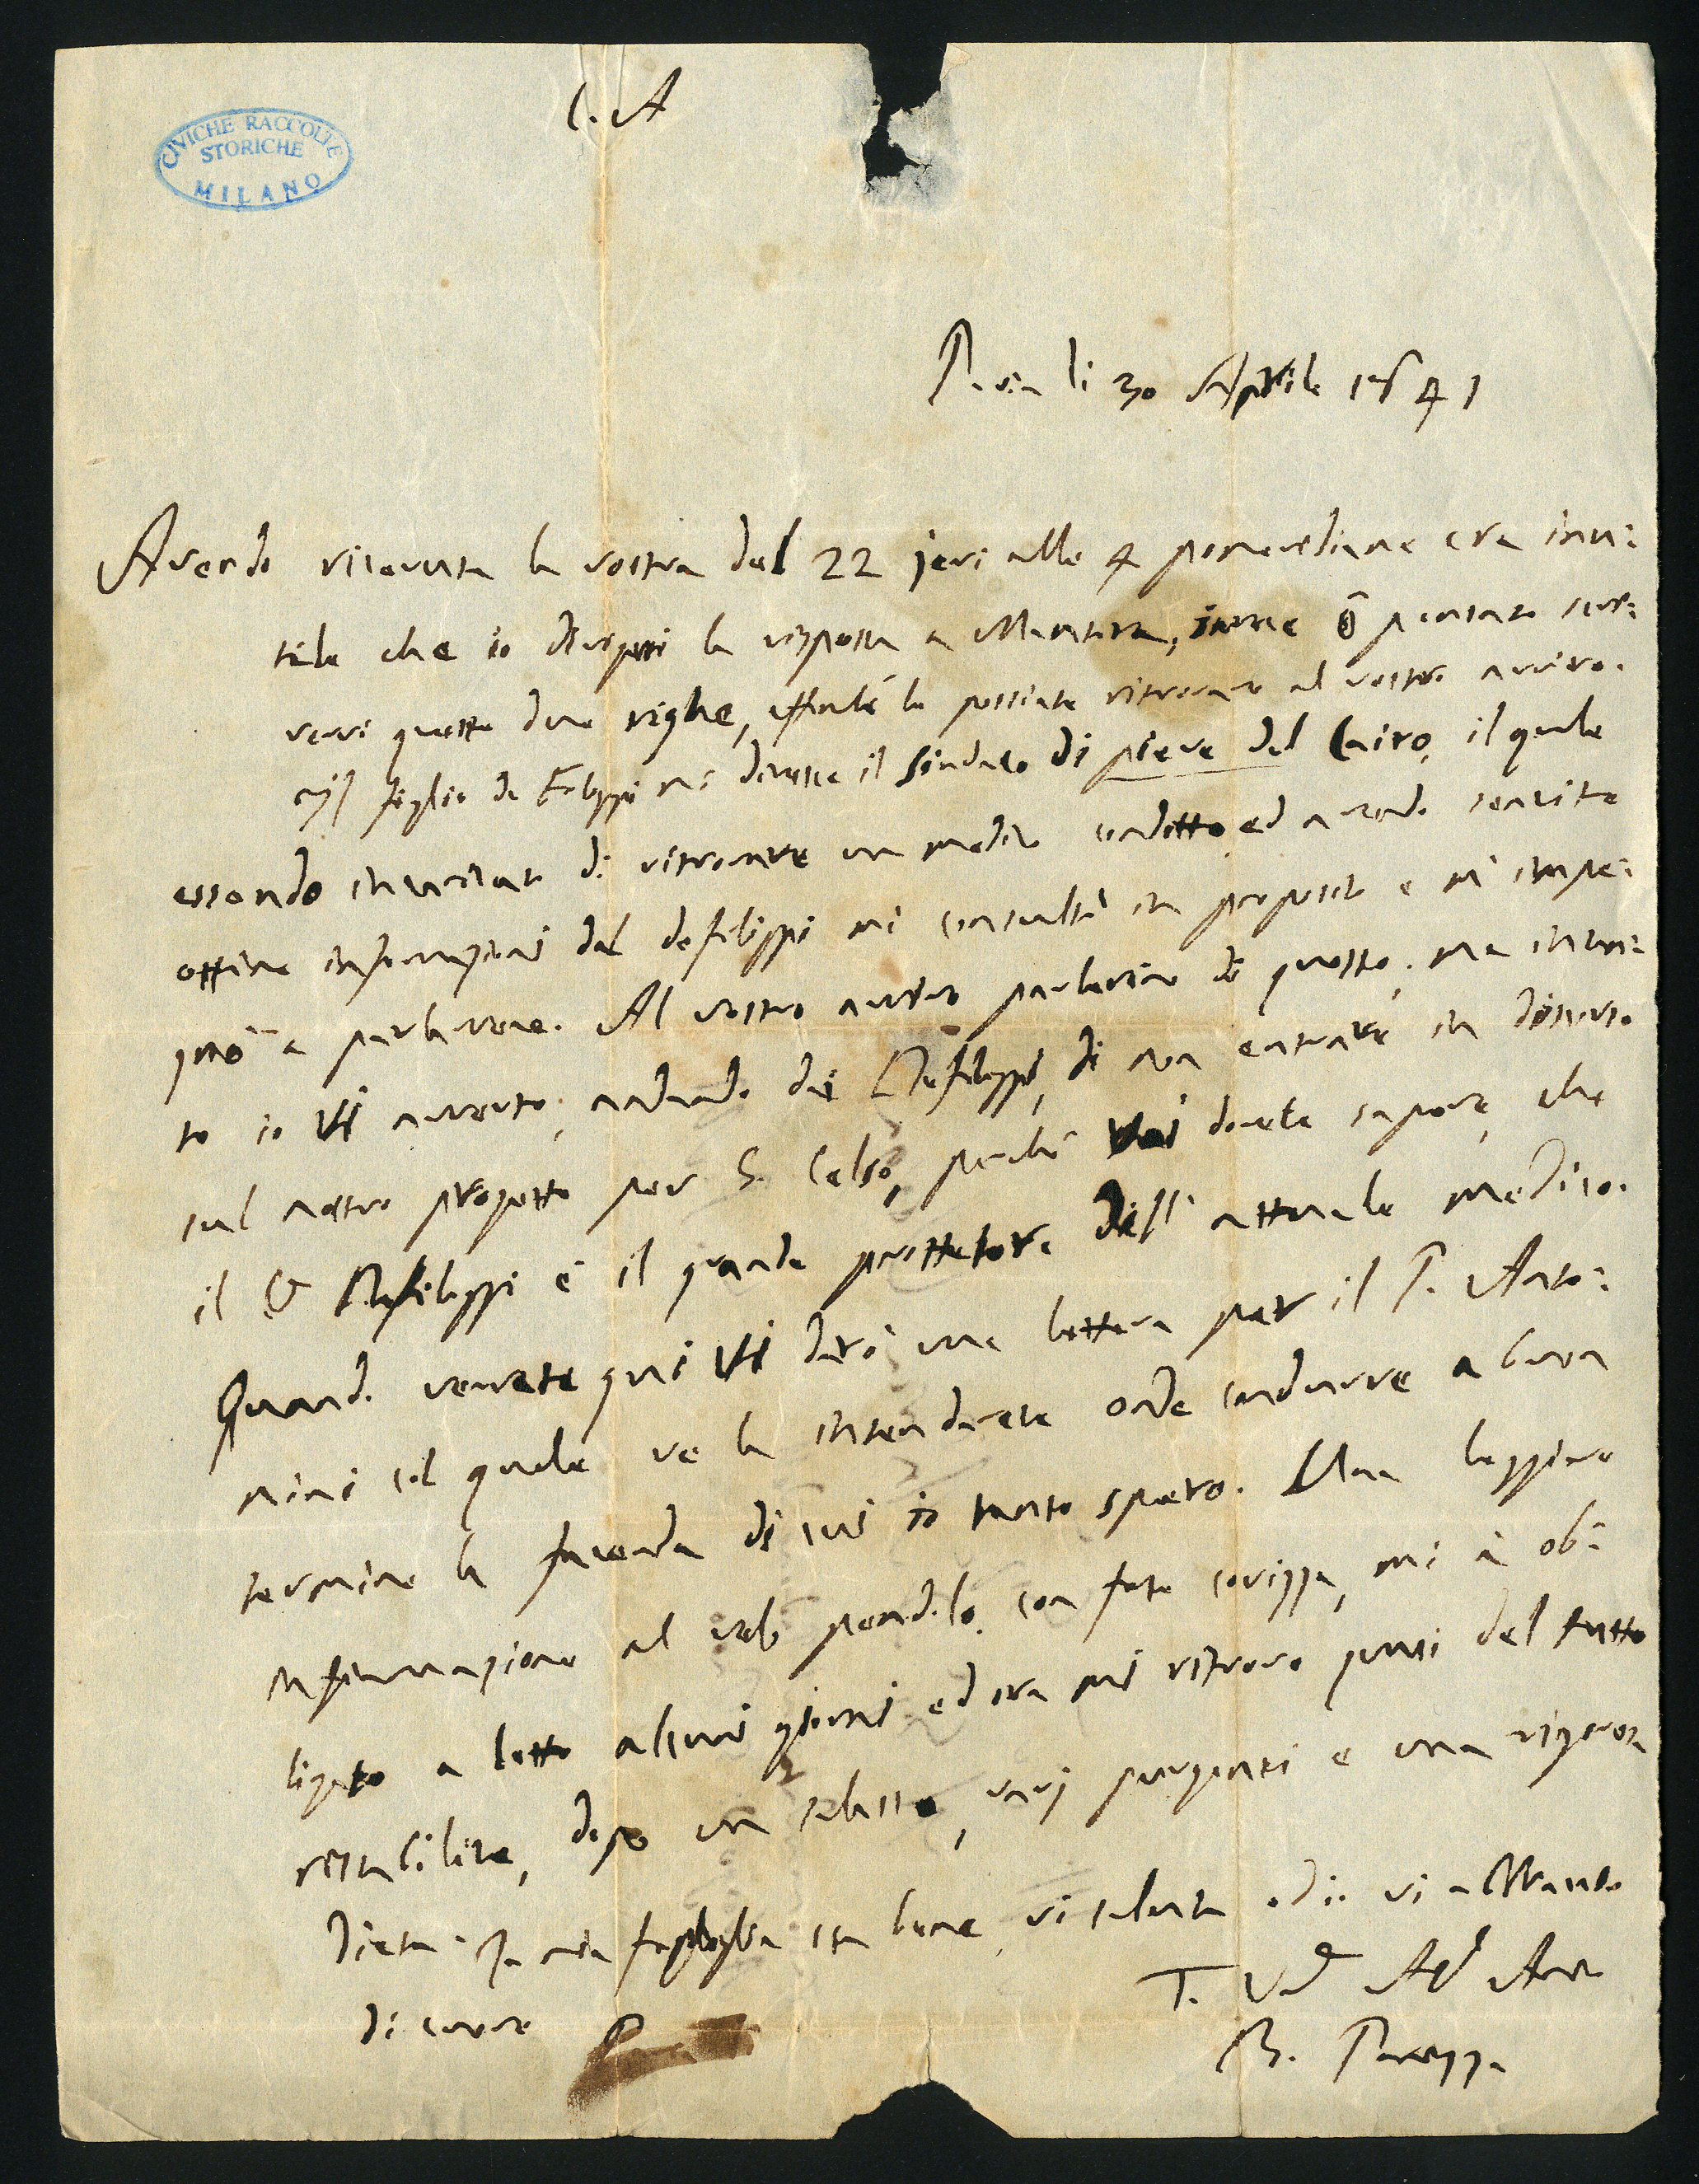 C. A
CIVICHE RACCOLTE
STORICHE
MILANO
Pavia li 30 Aprile 1841
Avendo ricevuta la vostra del 22 jeri alle 4 pomeridiane era inu:
tile che io dirigessi la risposta a Mantova, invece ò pensato scri:
vervi queste due righe, affinché le possiate ritrovare al vostro arrivo.
figlio de Filippi mi diresse il Sindaco di pieve del Cairo, il quale
essendo incaricato di ritrovare un medico condotto, ed avendo sentite
ottime informazioni dal defilippi mi consultò in proposito e m' impe:
gnò a parlarvene. Al vostro arrivo parleremo di questo; ma intan:
to io Vi avverto, andando dai Defilippi, di non entrare in discorso
sul nostro progetto per S. Celso, perché Voi dovete sapere, che
il Defilippi è il grande prottetore dell' attuale medico.
Quando verrete qui Vi darò una lettera per il P. Anto:
nini col quale ve la intenderete onde condurre a buon
termine la facenda di cui io tanto spero. Una leggiere
infiammazione al velo pendolo, con forte corizza, mi à ob:
ligato a letto alcuni giorni ed ora mi ritrovo quasi del tutto
ristabilito, dopo un salasso, varj purganti e una rigorosa
dieta. La mia famiglia sta bene, vi saluta ed io vi abbraccio
di cuore
T. V. Aff Amico
B. Panizza